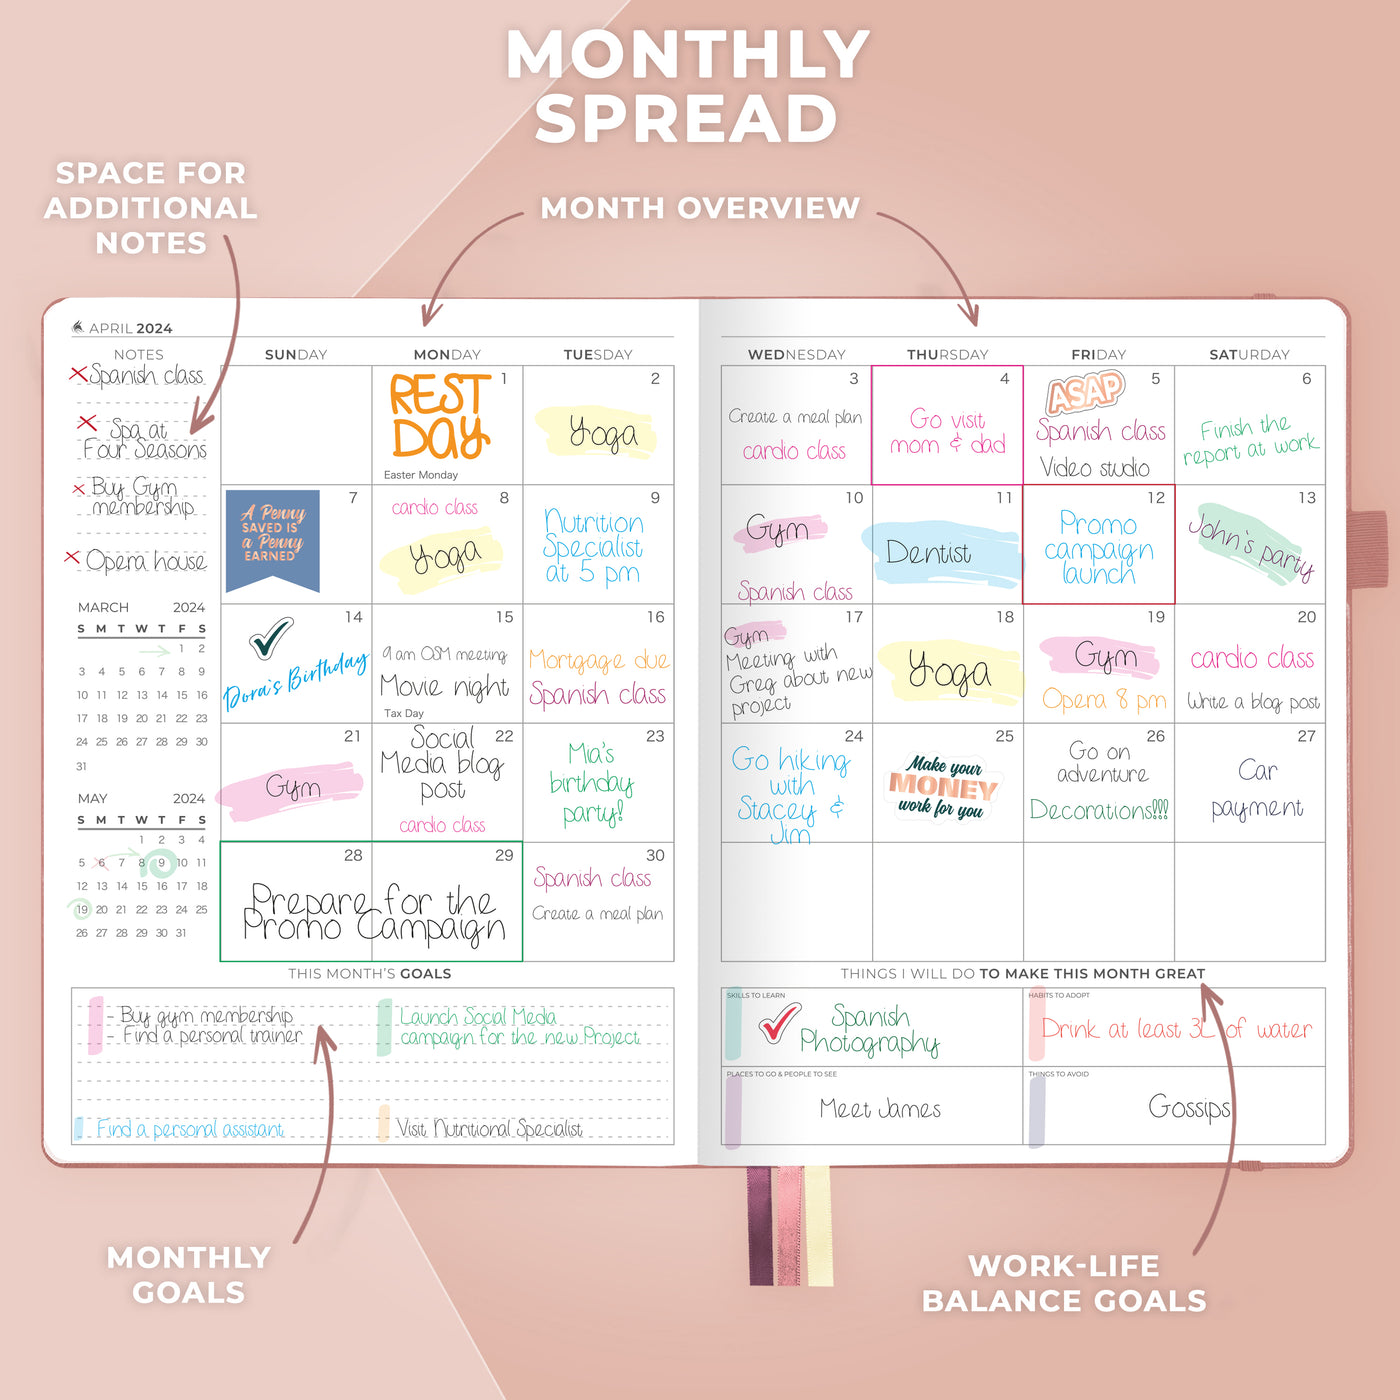 MONTHLY
SPREAD
SPACE FOR
ADDITIONAL
NOTES
MONTH OVERVIEW
APRIL 2024
NOTES
SUNDAY MONDAY TUESDAY
WEDNESDAY THURSDAY FRIDAY SATURDAY
Spanish class
Spa at
Four Seasons
Buy Gym
membership
Opera house
MARCH 2024
S M T W T F S
1 2
3 4 5 6 7 8 9
10 11 12 13 14 15 16
17 18 19 20 21 22 23
24 25 26 27 28 29 30
31
MAY 2024
S M T W T F S
1 2 3 4
5 6 7 8 9 10 11
12 13 14 15 16 17 18
19 20 21 22 23 24 25
26 27 28 29 30 31
1
REST
DAY
Easter Monday
2
Yoga
3
Create a meal plan
cardio class
4
Go visit
mom & dad
5
ASAP
Spanish class
Video studio
6
Finish the
report at work
7
A Penny
SAVED IS
a Penny
EARNED
8
cardio class
Yoga
9
Nutrition
Specialist
at 5 pm
10
Gym
Spanish class
11
Dentist
12
Promo
campaign
launch
13
John's party
14
Dora's Birthday
15
9 am OSM meeting
Movie night
Tax Day
16
Mortgage due
Spanish class
17
Gym
Meeting with
Greg about new
project
18
Yoga
19
Gym
Opera 8 pm
20
cardio class
Write a blog post
21
Gym
22
Social
Media blog
post
cardio class
23
Mia's
birthday
party!
24
Go hiking
with
Stacey &
Jim
25
Make your
MONEY
work for you
26
Go on
adventure
Decorations!!!
27
Car
payment
28 29
Prepare for the
Promo Campaign
30
Spanish class
Create a meal plan
THIS MONTH'S GOALS
- Buy gym membership
- Find a personal trainer
Launch Social Media
campaign for the new Project
Find a personal assistant
Visit Nutritional Specialist
THINGS I WILL DO TO MAKE THIS MONTH GREAT
SKILLS TO LEARN
Spanish
Photography
HABITS TO ADOPT
Drink at least 3L of water
PLACES TO GO & PEOPLE TO SEE
Meet James
THINGS TO AVOID
Gossips
MONTHLY
GOALS
WORK-LIFE
BALANCE GOALS